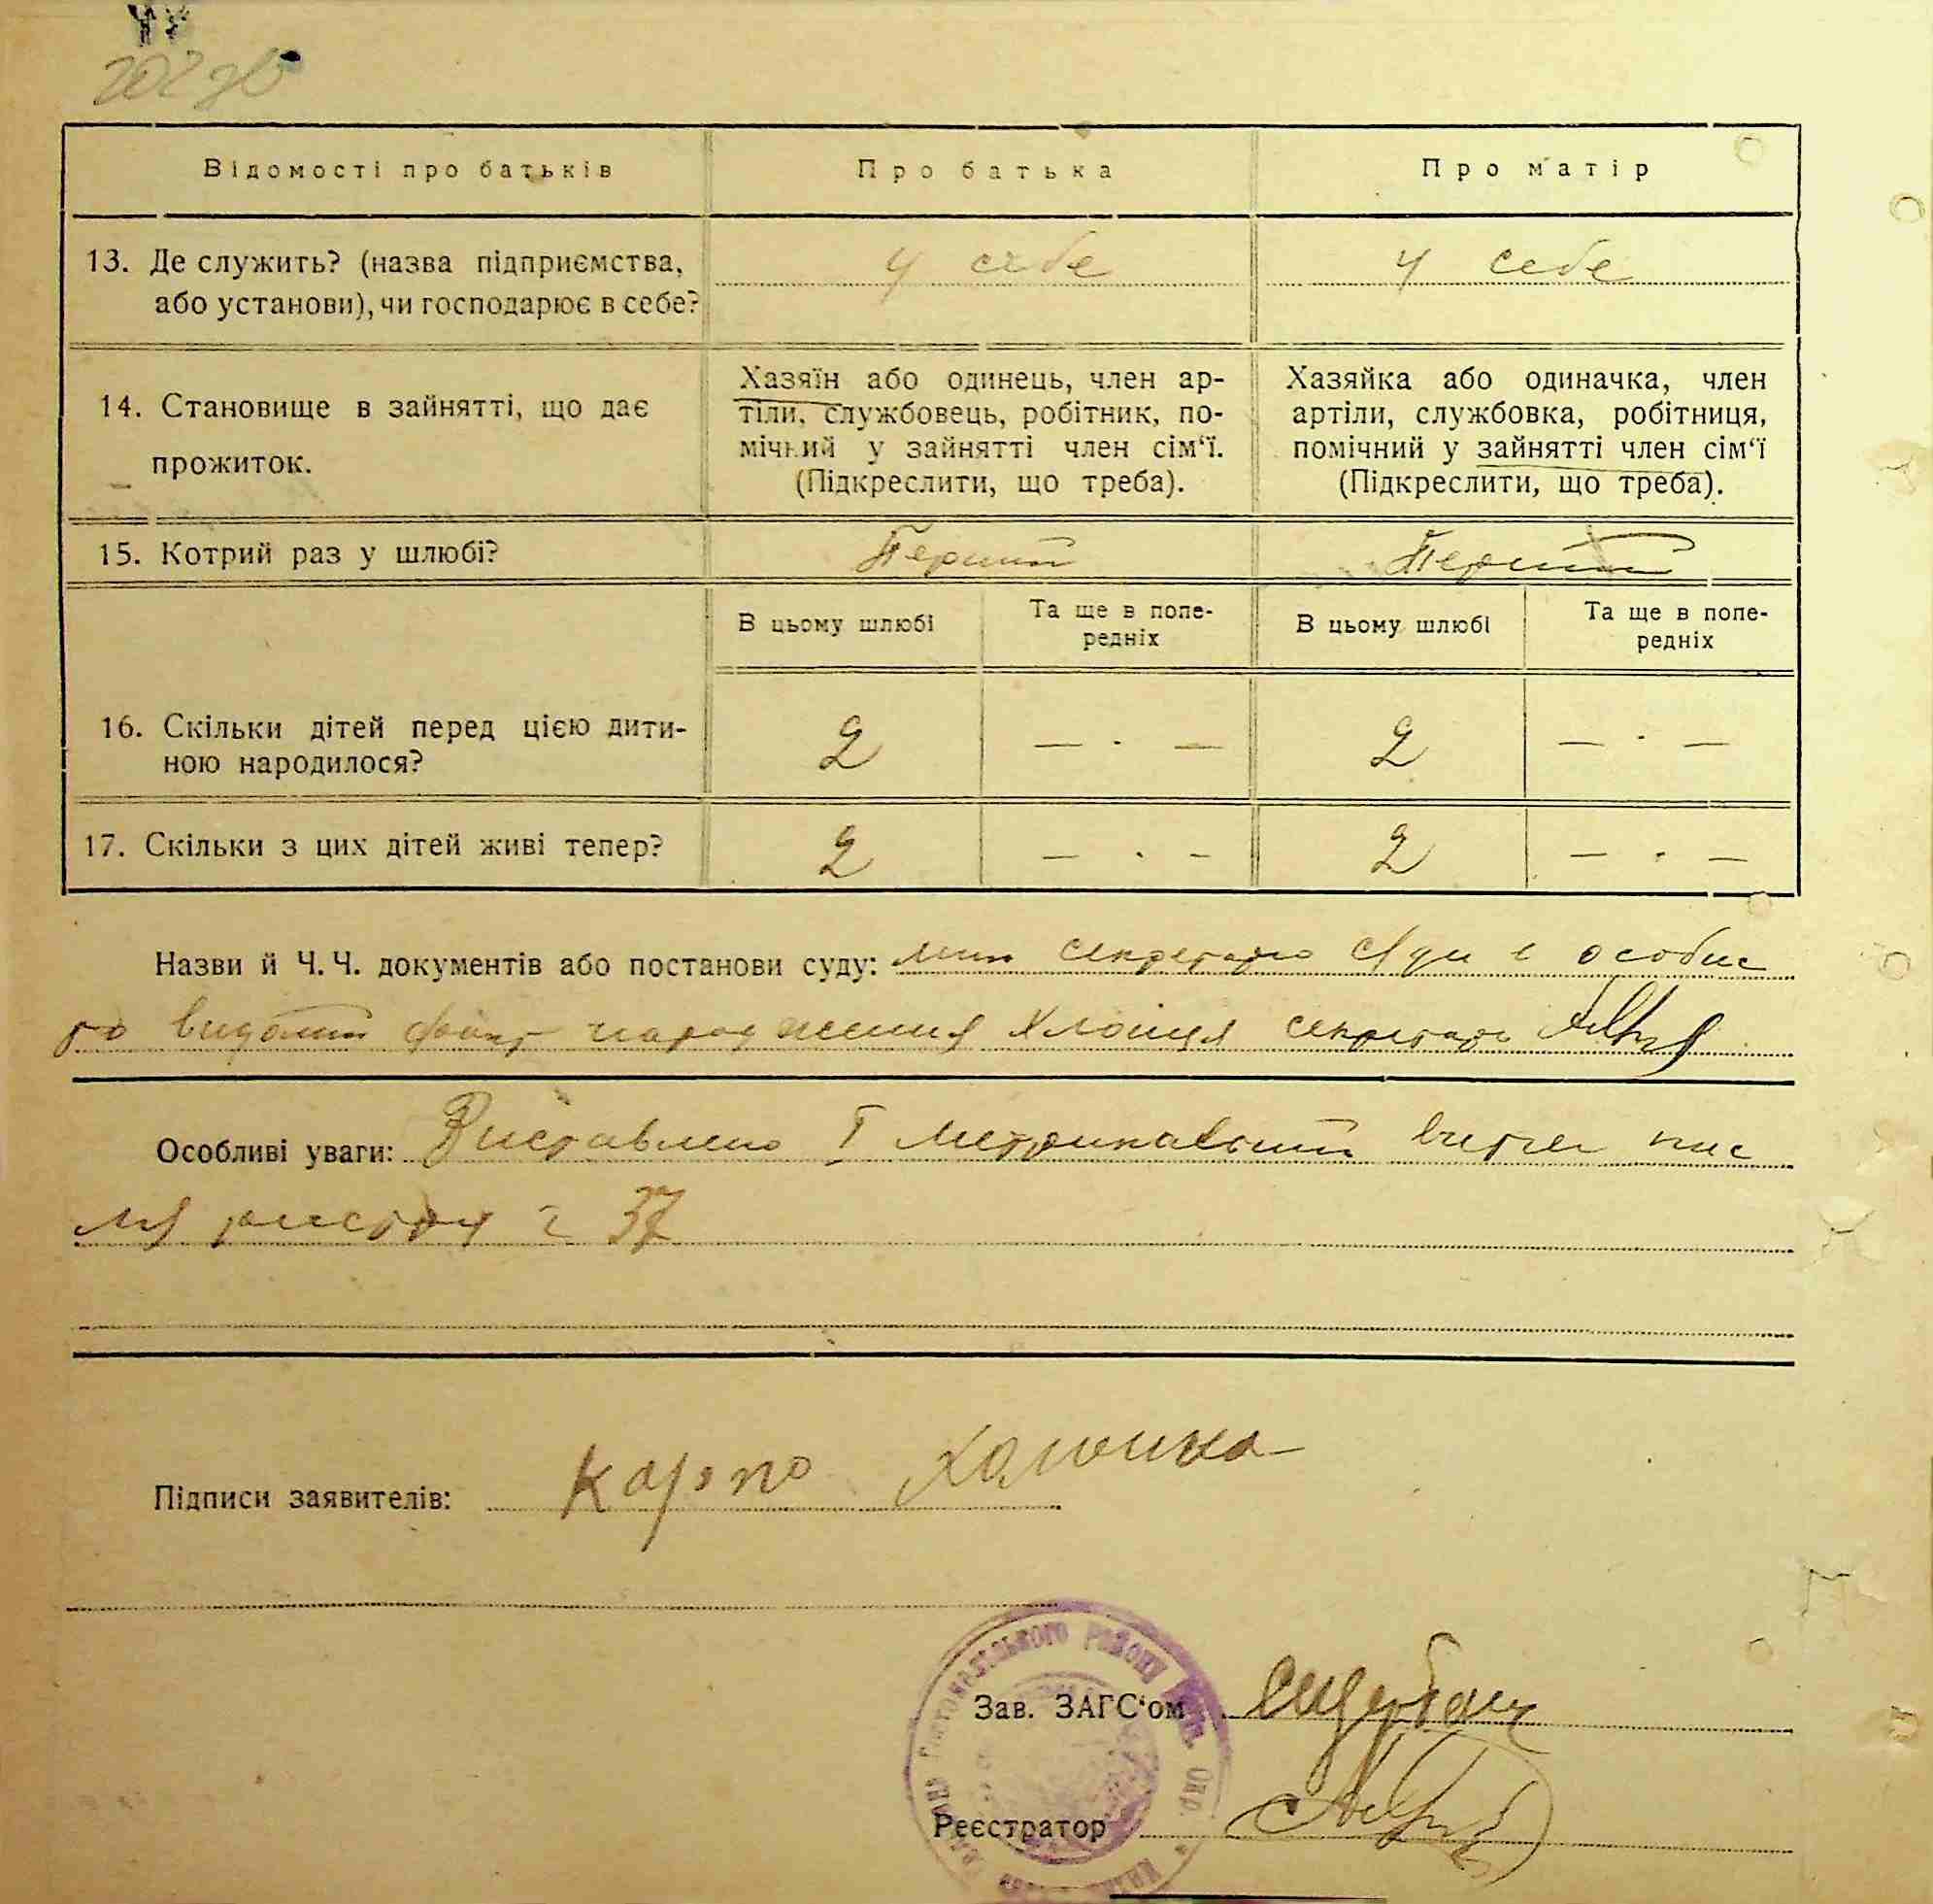 202 зв
Відомості про батьків
Про батька
Про матір
13. Де служить? (назва підприємства,
або установи), чи господарює в себе?
у себе
у себе
14. Становище в зайнятті, що дає
прожиток.
Хазяїн або одинець, член ар-
тіли, службовець, робітник, по-
мічний у зайнятті член сім‘ї.
(Підкреслити, що треба).
Хазяйка або одиначка, член
артіли, службовка, робітниця,
помічний у зайнятті член сім‘ї
(Підкреслити, що треба).
15. Котрий раз у шлюбі?
Перший
Перший
В цьому шлюбі
Та ще в попе-
редніх
В цьому шлюбі
Та ще в попе-
редніх
16. Скільки дітей перед цією дити-
ною народилося?
2
— · —
2
— · —
17. Скільки з цих дітей живі тепер?
2
— · —
2
— · —
Назви й Ч. Ч. документів або постанови суду: секретарю с/ди е особис
то факт народження хлопця секретарь
Особливі уваги: Виставлено І Метрикальний витяг пис
ля реєстру 37
Підписи заявителів: Карпо
Зав. ЗАГС‘ом Сщербак
Реєстратор
району
окр.